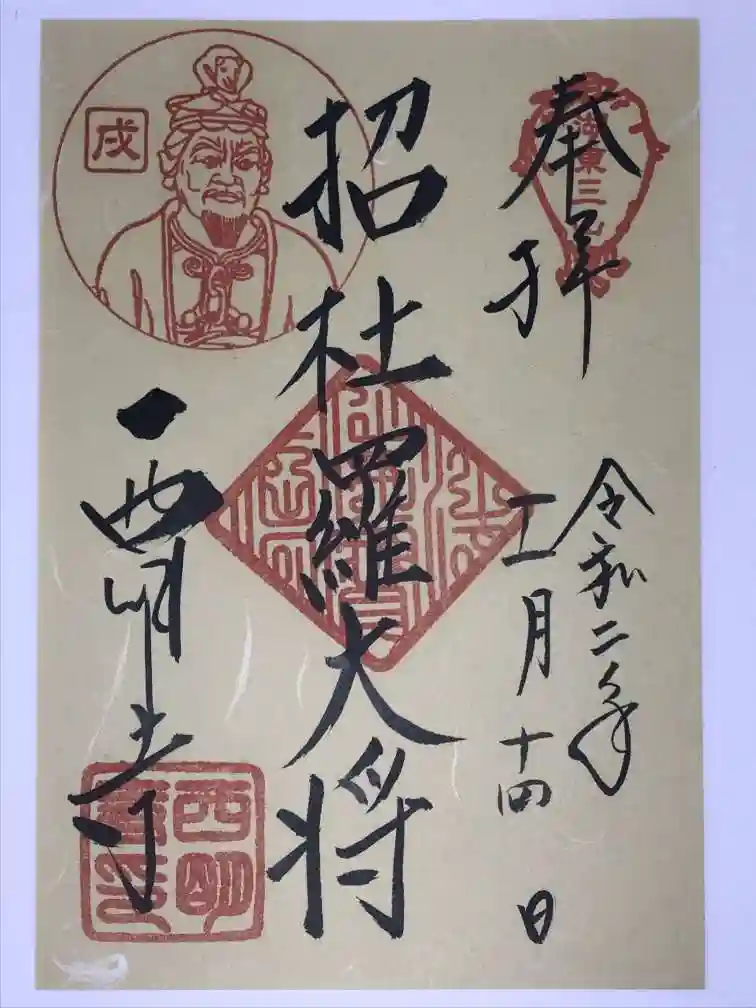 奉拝
令和二年
工月十四日
招杜羅大将
西明寺
戌
東三
西明